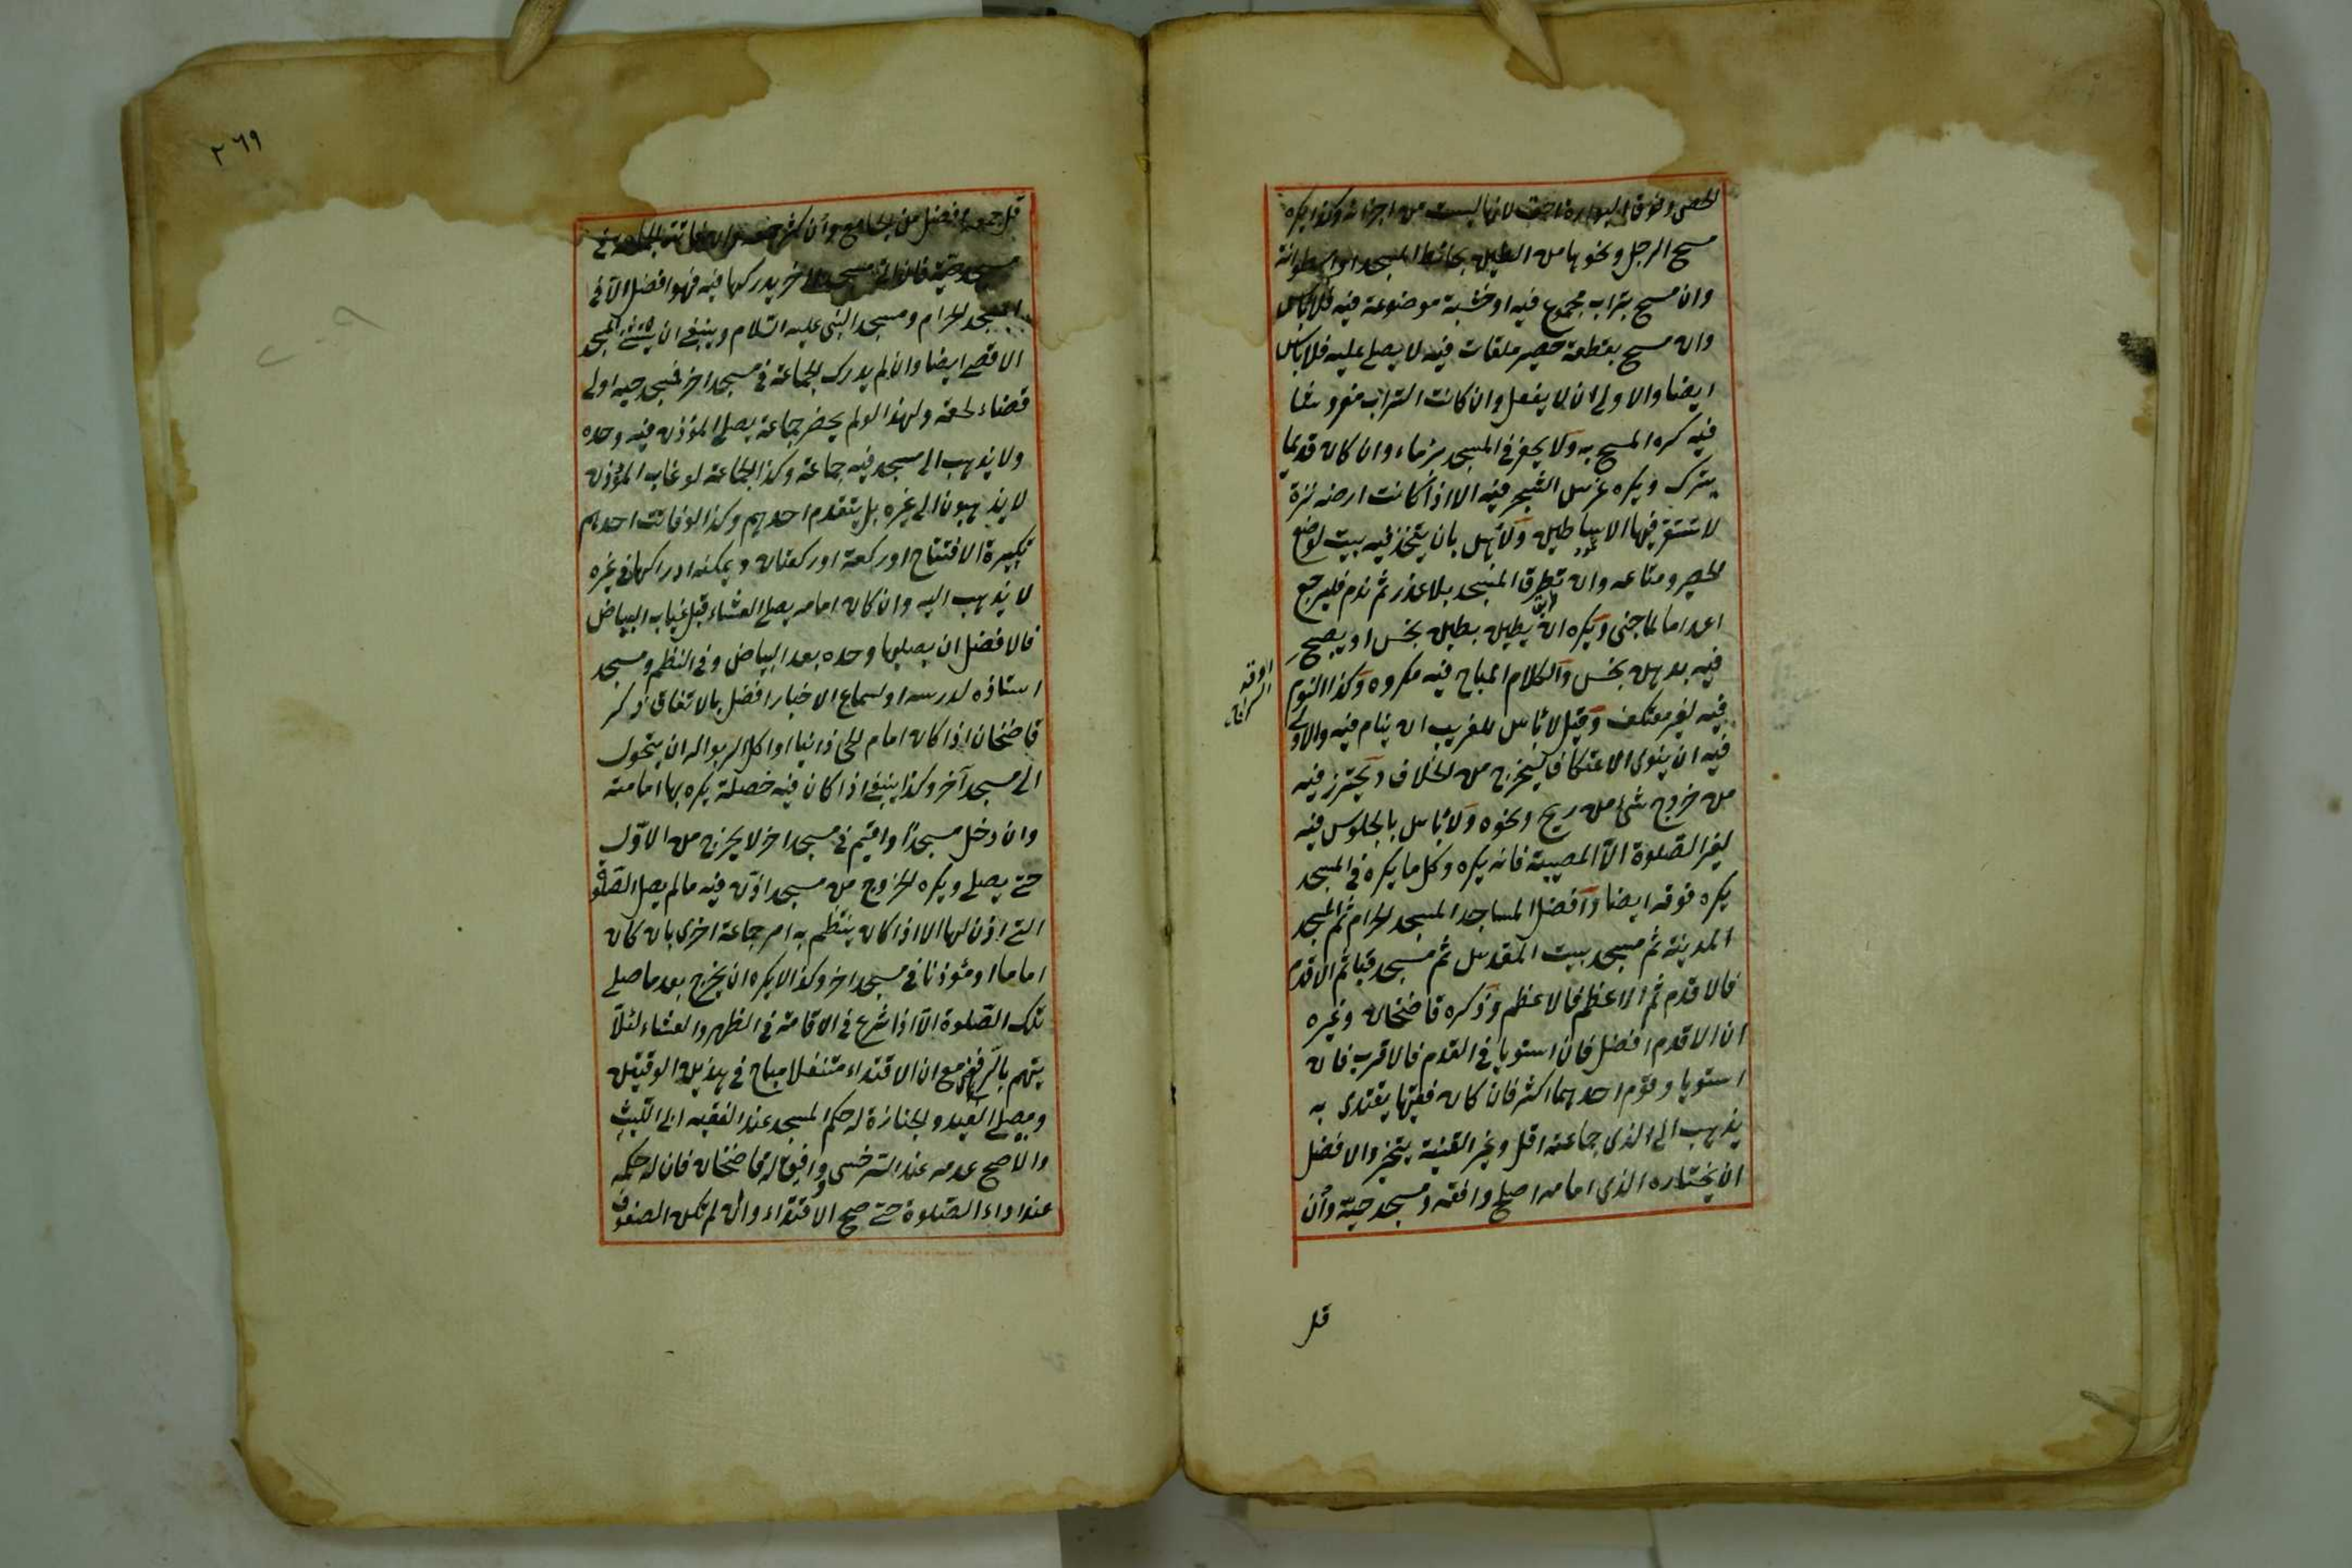 الحصى وفوق البوارى اخف لانها ليست من اجزائه وكذا يكره
مسح الرجل ونحوها من الطين بحائط المسجد او اسطوانة
وان مسح بتراب مجموع فيه او خشبة موضوعة فيه فلا باس
وان مسح بقطعة حصير ملقات فيه لا يصلى عليه فلا باس
ايضا والاولى ان لا يفعل وان كانت التراب مفروشا
فيه كره المسح به ولا يحفر فى المسجد بئر ماء وان كان قديما
يترك ويكره غرس الشجر فيه الا اذا كانت ارضه نزة
لا تستقر فيها الاساطين ولا باس بان يتخذ فيه بيت لوضع
الحصير ومتاعه وان تطرق المسجد بلا عذر ثم ندم فليرجع
اعداما لما جنى ويكره ان يطين بطين نجس او يصبح
فيه بدهن نجس والكلام المباح فيه مكروه وكذا النوم
فيه لغير معتكف وقيل لا باس للغريب ان ينام فيه والاولى
فيه ان ينوى الاعتكاف ليخرج من الخلاف ويحترز فيه
من خروج شئ من ريح ونحوه ولا باس بالجلوس فيه
لغير الصلوة الا المصيبة فانه يكره وكل ما يكره فى المسجد
يكره فوقه ايضا وافضل المساجد المسجد الحرام ثم المسجد
المدينة ثم مسجد بيت المقدس ثم مسجد قبا ثم الاقدم
فالاقدم ثم الاعظم فالاعظم وذكره قاضخان وغيره
ان الاقدم افضل فان استويا فى القدم فالاقرب فان
استويا وقوم احدهما اكثر فان كان فقيها يقتدى به
يذهب الى الذى جماعته اقل وغير الفقيه يتخير والافضل
ان يختاره الذى امامه اصلح وافقه ومسجد حيه وان
قل
قل جمعه افضل من الجامع وان كثر جمعه وان فاتته الجماعة فى
مسجد حيه فان اتى مسجدا اخر يدركها فيه فهو افضل الا فى
المسجد الحرام ومسجد النبى عليه السلام وينبغى ان يستثنى المسجد
الاقصى ايضا وان لم يدرك الجماعة فى مسجد اخر فمسجد حيه اولى
قضاء لحقه ولهذا لو لم يحضر جماعة يصلى المؤذن فيه وحده
ولا يذهب الى مسجد فيه جماعة وكذا الجماعة لو غاب المؤذن
لا يذهبون الى غيره بل يتقدم احدهم وكذا لو فاتت احدهم
تكبيرة الافتتاح او ركعة او ركعتان ويمكنه ادراكها فى غيره
لا يذهب اليه وان كان امامه يصلى العشاء قبل غياب البياض
فالافضل ان يصليها وحده بعد البياض وفى النظم ومسجد
استاذه لدرسه او لسماع الاخبار افضل بالاتفاق ذكر
قاضخان اذا كان امام الحى زانيا او اكل الربوا له ان يتحول
الى مسجد آخر وكذا ينبغى اذا كان فيه خصلة يكره بها امامته
وان دخل مسجدا واقيم فى مسجد اخر لا يخرج من الاول
حتى يصلى ويكره الخروج من مسجد اذن فيه ما لم يصل الصلوة
التى اذن لها الا اذا كان ينتظم به امر جماعة اخرى بان كان
اماما او مؤذنا فى مسجد اخر وكذا لا يكره ان يخرج بعد ما صلى
تلك الصلوة الا اذا شرع فى الاقامة فى الظهر والعشاء لئلا
يتهم بالرفض مع ان الاقتداء متنفلا مباح فى هذين الوقتين
ومصلى العيد والجنازة له حكم المسجد عند الفقيه ابى الليث
والاصح عدمه عند السرخسى ووافق له قاضخان فان له حكمه
عند اداء الصلوة حتى صح الاقتداء وان لم تكن الصفوف
٢٦٩